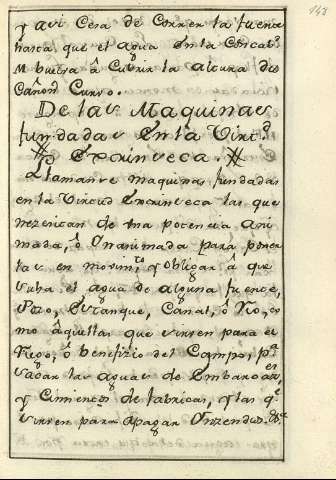 143
y así Cesa de Correr la fuente
hasta que el agua en la Concab.
buelba â Cubrir la altura del
Cañon Curbo.
De las Maquinas
fundadas en la Virt.d
Extrinseca.
Llamanse maquinas fundadas
en la Virtud Extrinseca las que
nezesitan de una potencia ani
mada, ô Ynanimada para poner
las en movim.to y obligar â que
suba el agua de alguna fuente,
Pozo, Estanque, Canal, ô Rio, co
mo âquellas que sirven para el
Riego, ô benefizio del Campo, p.a
sacar las aguas de Embarcaz.es
y Cimientos de fabricas, y las q.e
sirven para apagar Ynzendios &.a